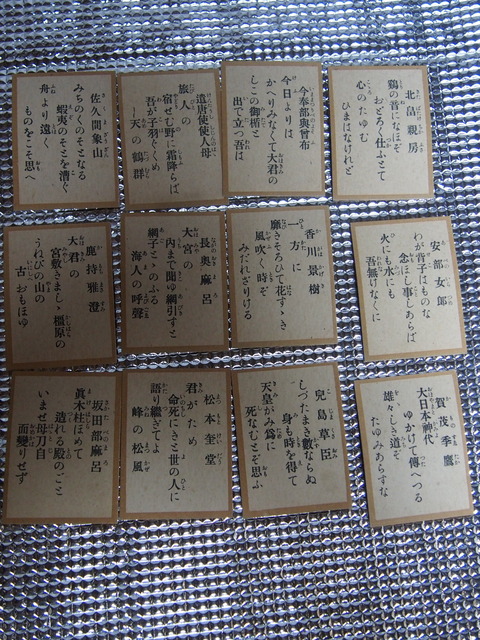 北畠親房
鶏の音になほぞ
おどろく仕ふとて
心のたゆむ
ひまはなけれど
今奉部與曾布
今日よりは
かへりみなくて大君の
しこの御楯と
出で立つ吾は
遣唐使使人母
旅人の
宿せむ野に霜降らば
吾が子羽ぐくめ
天の鶴群
佐久間象山
みちのくのそとなる
蝦夷のそとを漕ぐ
舟より遠く
ものをこそ思へ
安部女郎
わが背子はものな
念ほし事しあらば
火にも水にも
吾無けなくに
香川景樹
一方に
靡きそろひて花すゝき
風吹く時ぞ
みだれざりける
長奥麻呂
大宮の
内まで聞ゆ網引すと
網子とゝのふる
海人の呼聲
鹿持雅澄
大君の
宮敷きましゝ橿原の
うねびの山の
古おもほゆ
賀茂季鷹
大日本神代
ゆかけて傳へつる
雄々しき道ぞ
たゆみあらすな
兒島草臣
しづたまき數ならぬ
身も時を得て
天皇がみ爲に
死なむとぞ思ふ
松本奎堂
君がため
命死にきと世の人に
語り繼ぎてよ
峰の松風
坂田部麻呂
眞木柱ほめて
造れる殿のごと
いませ母刀自
面變りせず